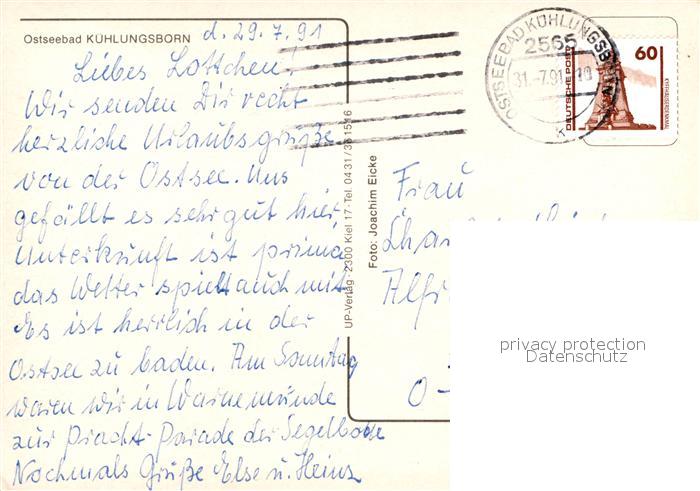 Ostseebad KÜHLUNGSBORN
d. 29.7.91
Liebes Lottchen!
Wir senden Dir recht
herzliche Urlaubsgrüße
von der Ostsee. Uns
gefällt es sehr gut hier
Unterkunft ist prima
das Wetter spielt auch mit
Es ist herrlich in der
Ostsee zu baden. Am Sonntag
waren wir in Warnemünde
zur Pracht-Parade der Segelboote
Nochmals Grüße Else u. Heinz
UP-Verlag · 2300 Kiel 17 · Tel. 0431/361516
Foto: Joachim Eicke
OSTSEEBAD KÜHLUNGSBORN
2565
31.-7.91-10
K
DEUTSCHE POST
60
KYFFHÄUSERDENKMAL
Frau
Alfr
O-
privacy protection
Datenschutz